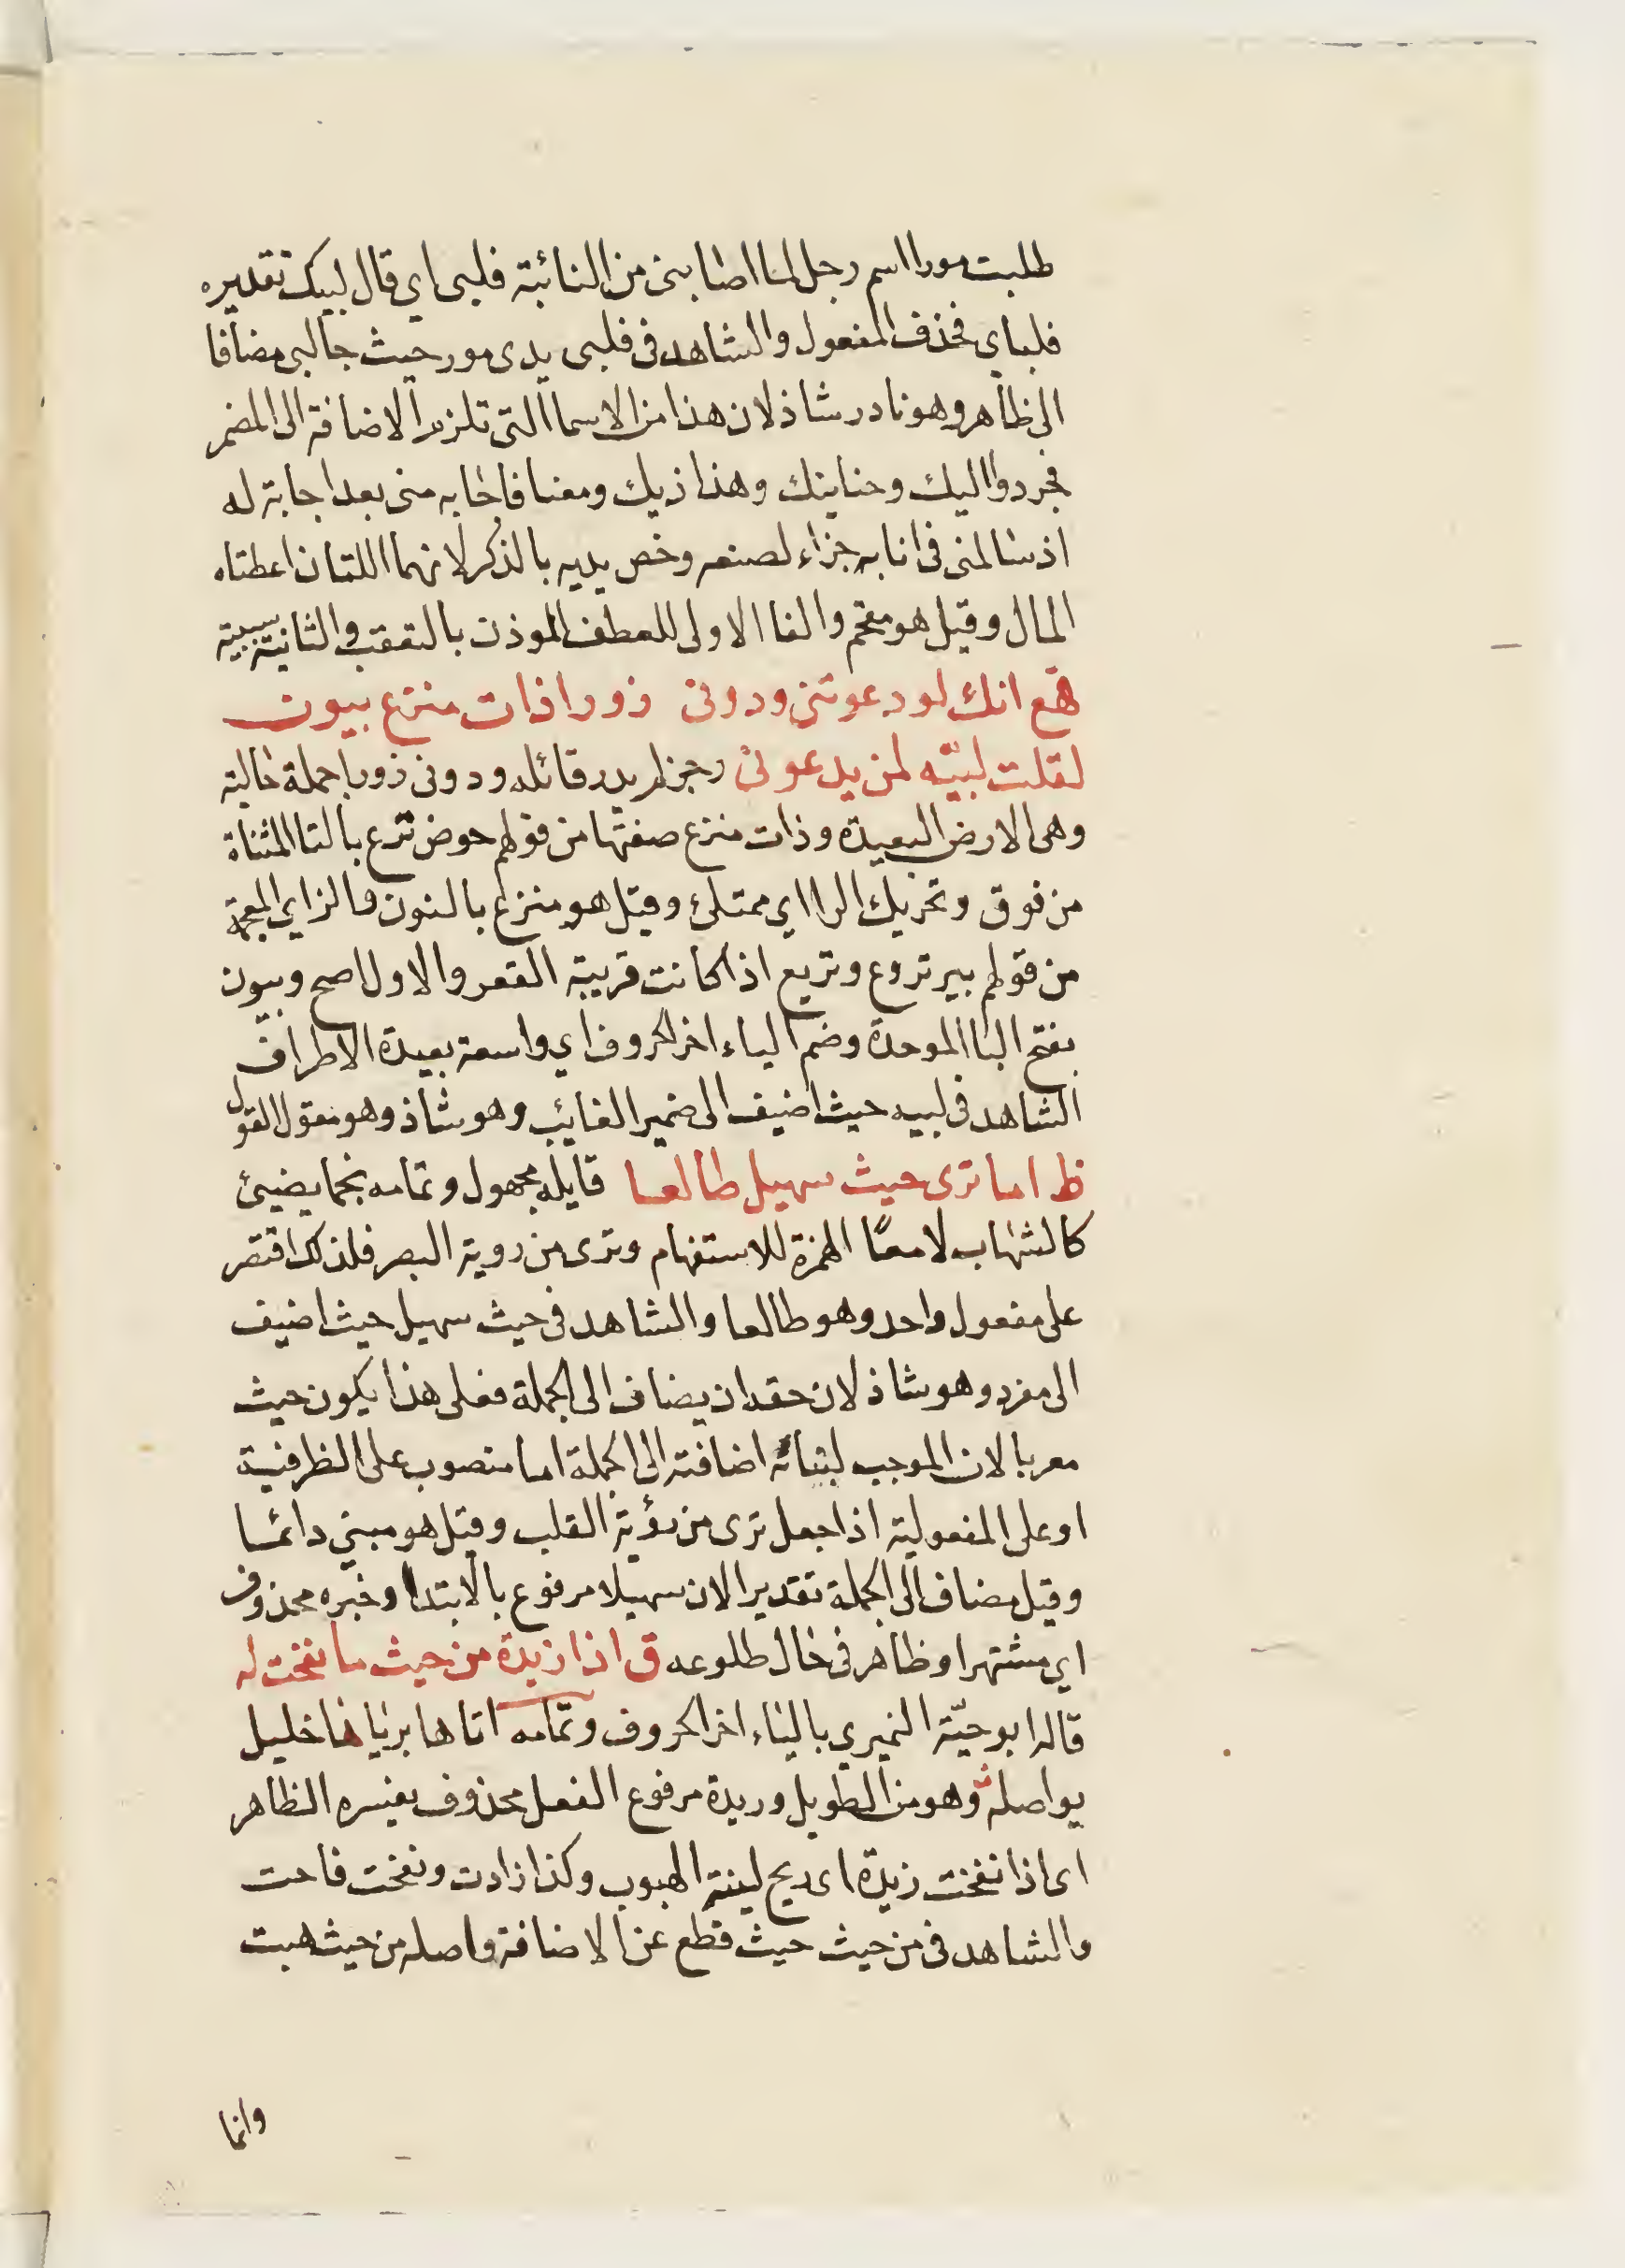 طلبت مورا اسم رجل لما اصابني من النائبة فلبى اي قال لبيك تقديره
فلباي فحذف المفعول والشاهد في فلبى يدى مور حيث جا لبي مضافا
الى ظاهر وهو نادر شاذ لان هذا من الاسما التي تلزم الاضافة الى المضمر
فجر دواليك وحنانيك وهذاذيك ومعنا فاجابه مني بعد اجابة له
اذ سالمنى في انابه جزاء لصنعه وخص يديه بالذكر لانهما اللتان اعطتاه
المال وقيل هو مقحم والفا الاولى للعطف الموذن بالتعقب والثانية سببية
قهع انك لو دعوتني ودوني زورا ذات منزع بيون
لقلت لبيّه لمن يدعوني رجز لم يدر قائله ودوني زورا جملة حالية
وهي الارض البعيدة وذات منزع صفتها من قولهم حوض ترع بالتا المثناة
من فوق وتحريك الرا اي ممتلئ وقيل هو منزع بالنون والزاي المعجمة
من قولهم بير نزوع ونزيع اذا كانت قريبة القعر والاول اصح وبيون
بفتح البا الموحدة وضم الياء اخر الحروف اي واسعة بعيدة الاطراف
الشاهد في لبيه حيث اضيف الى ضمير الغائب وهو شاذ وهو مقول القول
ظ اما ترى حيث سهيل طالعا قايله مجهول وتمامه نجما يضيئ
كالشهاب لامعًا الهمزة للاستفهام وترى من روية البصر فلذلك اقتصر
على مفعول واحد وهو طالعا والشاهد في حيث سهيل حيث اضيف
الى مفرد وهو شاذ لان حقه ان يضاف الى الجملة فعلى هذا يكون حيث
معربا لان الموجب لبنائه اضافته الى الجملة اما منصوب على الظرفية
او على المفعولية اذا جعل ترى من رؤية القلب وقيل هو مبني دائما
وقيل مضاف الى الجملة تقديرا لان سهيلا مرفوع بالابتدا وخبره محذوف
اي مشتهرا وظاهر في حال طلوعه ق اذا زيدة من حيث ما نفخت له
قاله ابو حيّة النميري بالياء اخر الحروف وتمامه اتاها برياها خليل
يواصله وهو من الطويل وريدة مرفوع الفعل محذوف يفسره الظاهر
اى اذا نفخت زيدة اى ريح لينة الهبوب وكذا زادت ونفخت فاحت
والشاهد في من حيث حيث قطع عن الاضافة واصله من حيث هبت
وانما